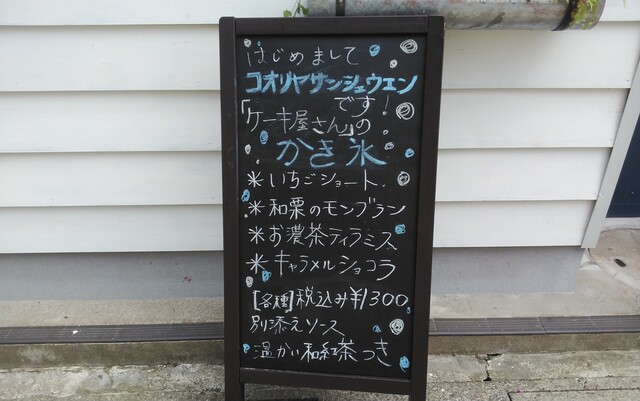 はじめまして
コオリヤサンシュウエン
です!
「ケーキ屋さん」の
かき氷
*いちごショート.
*和栗のモンブラン
*お濃茶ティラミス
*キャラメルショコラ
[各種]税込み¥1300
別添えソース
温かい和紅茶つき